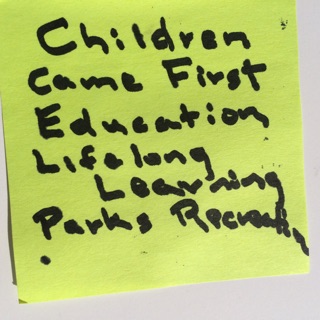 Children
Came First
Education
Lifelong
Learning
Parks Recreation